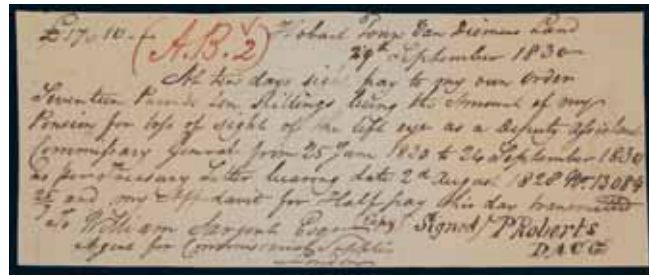 £17.10.- (A.B.2) Hobart Town Van Diemens Land
29th September 1830
At ten days sight pay to my own Order
Seventeen Pounds Ten Shillings being the Amount of my
Pension for loss of sight of the left eye as a Deputy Assistant
Commissary General from 25 June 1830 to 24 September 1830
as per Treasury Letter bearing date 2d August 1828 No. 13084
and my Affidavit for Half pay this day transmitted
To William Sargent Esqr Copy Signed/ P Roberts
Agent for Commissariat Supplies D A C G
London